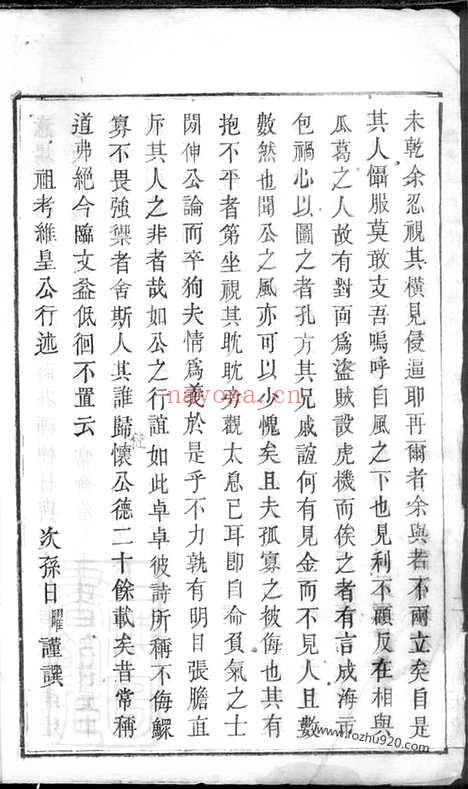 未乾余忍視其橫見侵逼耶再爾者余與若不兩立矣自是
其人懾服莫敢支吾嗚呼自風之下也見利不顧反在相與
瓜葛之人故有對面為盜賊設虎機而俟之者有言成海市
包禍心以圖之者孔方其兄戚誼何有見金而不見人且數
數然也聞公之風亦可以少愧矣且夫孤寡之被侮也其有
抱不平者第坐視其眈眈旁觀太息已耳即自命負氣之士
開伸公論而卒狗夫情為羨於是乎不力孰有明目張膽直
斥其人之非者哉如公之行誼如此卓卓彼詩所稱不侮鰥
寡不畏強禦者舍斯人其誰歸懷公德二十餘載矣昔常稱
道弗絕今臨文益低徊不置云
次孫日曜謹譔
祖考維皇公行述
nayona.cn
www.fozhu920.com